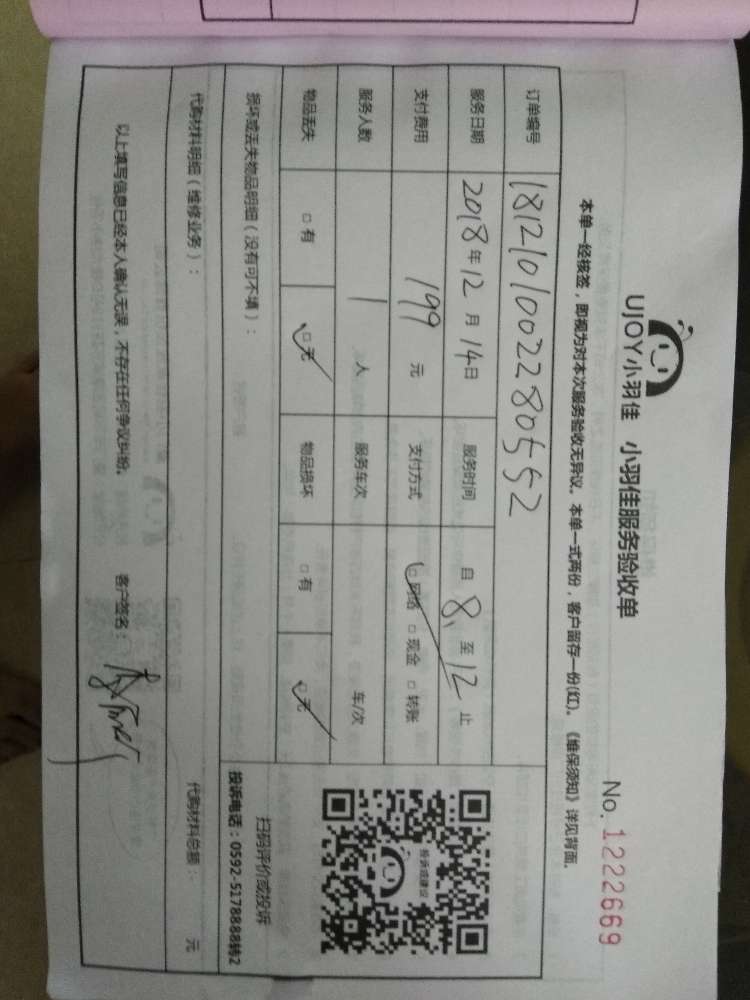 UJOY小羽佳 小羽佳服务验收单
No. 1222669
本单一经核签，即视为对本次服务验收无异议。本单一式两份，客户留存一份(红)。《维保须知》详见背面.
订单编号 181210100228055 2
服务日期 2018年12月14日 服务时间 自 8, 至 12 止
支付费用 199 元 支付方式 □网络 □现金 □转账
服务人数 1 人 服务车次 车/次
物品丢失 □有 □无 物品损坏 □有 □无
损坏或丢失物品明细（没有可不填）：
投诉或建议
扫码评价或投诉
投诉电话：0592-5178888转2
代购材料明细（维修业务）： 代购材料总额：- 元
以上填写信息已经本人确认无误，不存在任何争议纠纷。 客户签名：